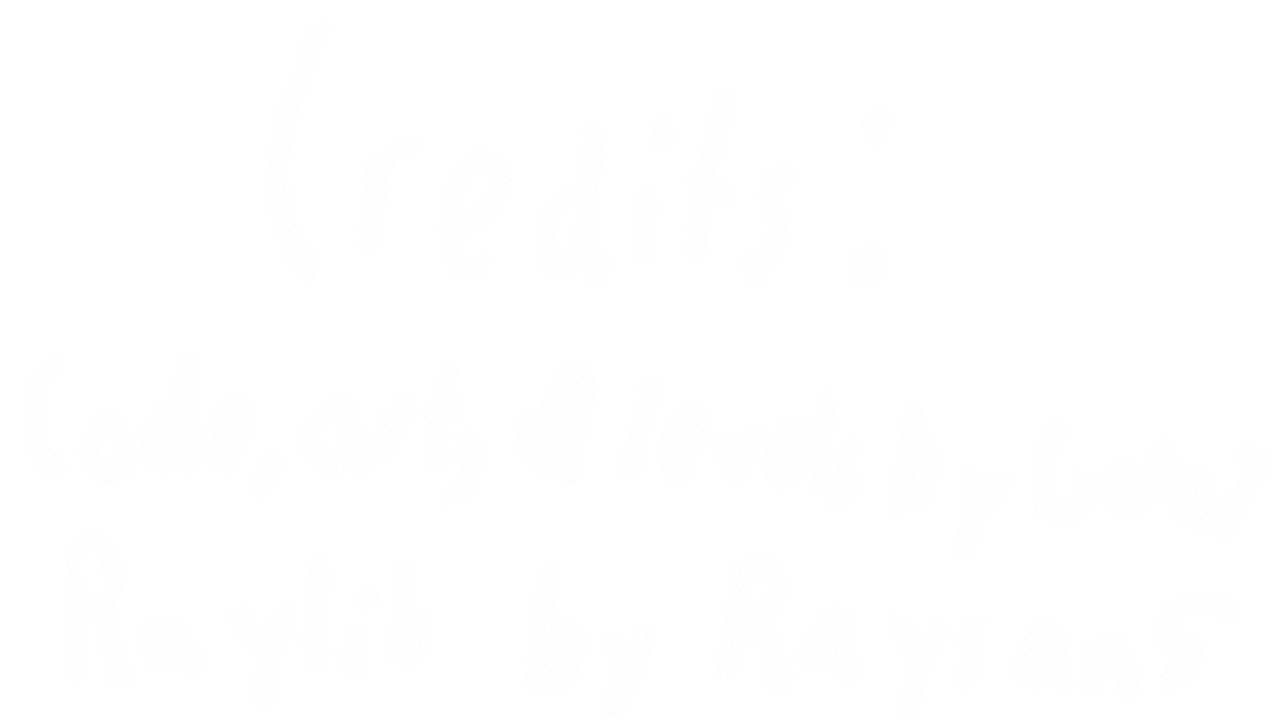 Credits:
Code, art, & levels by
Raylib by Raysan5